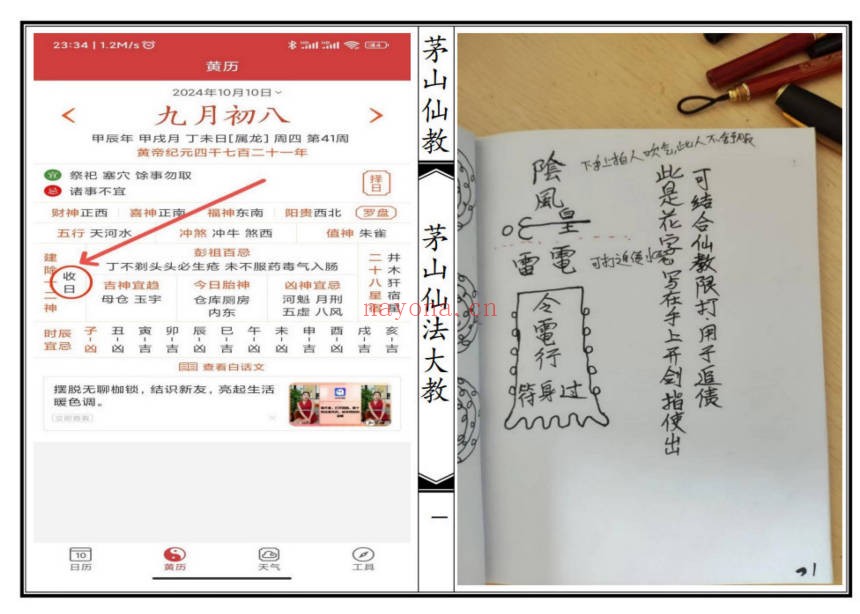 23:34 | 1.2M/s
黄历
2024年10月10日
< 九月初八 >
甲辰年 甲戌月 丁未日[属龙] 周四 第41周
黄帝纪元四千七百二十一年
宜 祭祀 塞穴 馀事勿取
忌 诸事不宜
择日
财神正西 喜神正南 福神东南 阳贵西北 罗盘
五行 天河水 冲煞 冲牛 煞西 值神 朱雀
建除十二神
收日
彭祖百忌
丁不剃头头必生疮 未不服药毒气入肠
吉神宜趋
母仓 玉宇
今日胎神
仓库厕房
内东
凶神宜忌
河魁 月刑
五虚 八风
二十八星宿
井木犴宿星
时辰宜忌
子 丑 寅 卯 辰 巳 午 未 申 酉 戌 亥
凶 凶 吉 吉 吉 凶 凶 吉 吉 吉 吉 吉
查看白话文
摆脱无聊枷锁，结识新友，亮起生活
暖色调。
立即查看
10
日历
黄历
天气
工具
茅山仙教
茅山仙法大教
一
mayona.cn
可结合仙教限打·用于追债
此是花字 写在手上开剑指使出
陰風
皇
雷電
令電行
待身过
21